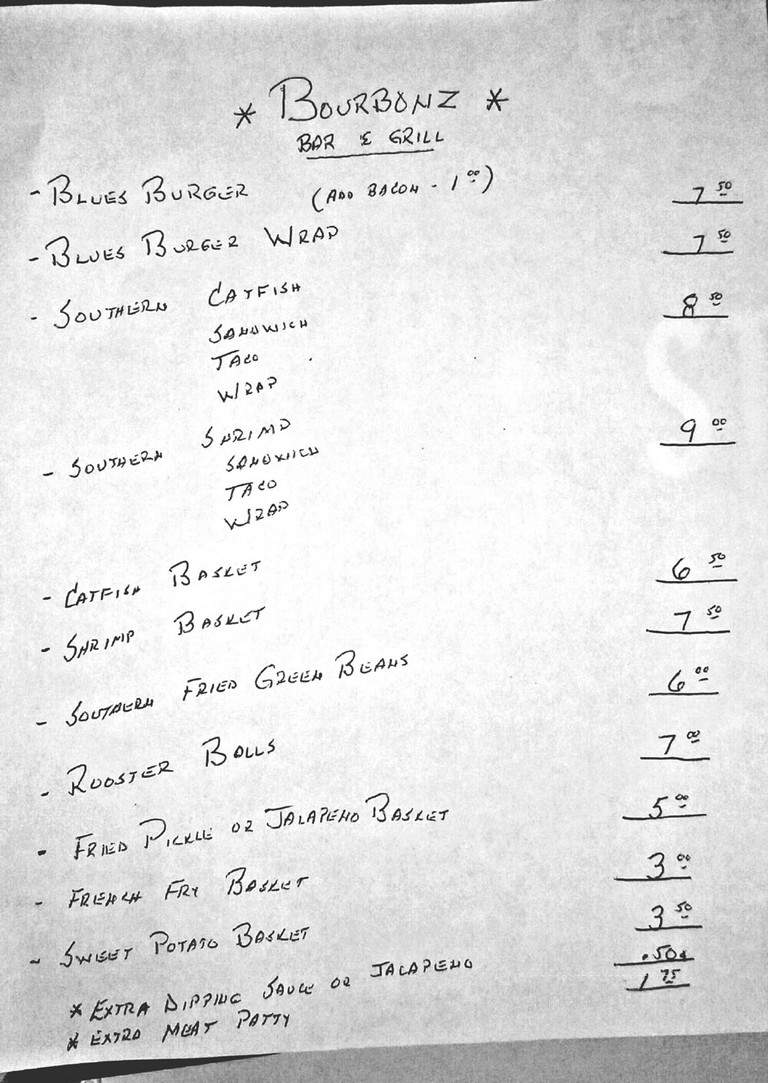 * BOURBONZ *
BAR & GRILL
- BLUES BURGER (ADD BACON - 1 00) 7 50
- BLUES BURGER WRAP 7 50
- SOUTHERN CATFISH 8 50
SANDWICH
TACO
WRAP
- SOUTHERN SHRIMP 9 00
SANDWICH
TACO
WRAP
- CATFISH BASKET 6 50
- SHRIMP BASKET 7 50
- SOUTHERN FRIED GREEN BEANS 6 00
- ROOSTER BALLS 7 00
- FRIED PICKLE OR JALAPENO BASKET 5 00
- FRENCH FRY BASKET 3 00
- SWEET POTATO BASKET 3 50
* EXTRA DIPPING SAUCE OR JALAPENO .50¢
* EXTRA MEAT PATTY 1 75